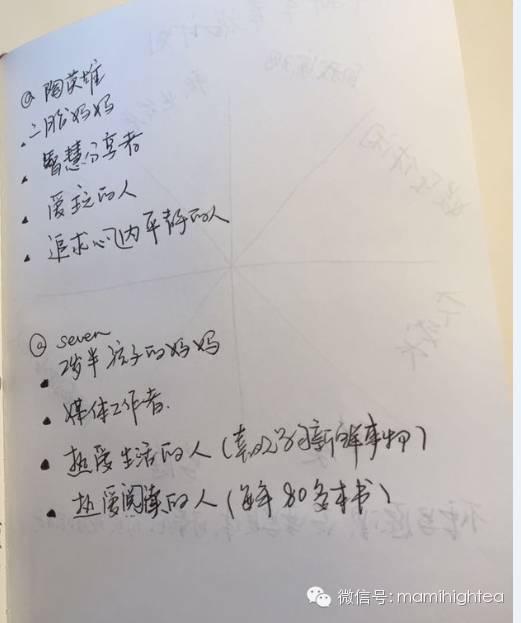 @ 陶英雄
· 二胎妈妈
· 智慧分享者
· 爱玩的人
· 追求心内平静的人
@ seven
2岁半孩子的妈妈
· 媒体工作者.
· 热爱生活的人（喜欢学习新鲜事物）
· 热爱阅读的人（每年80多本书）
微信号: mamihightea